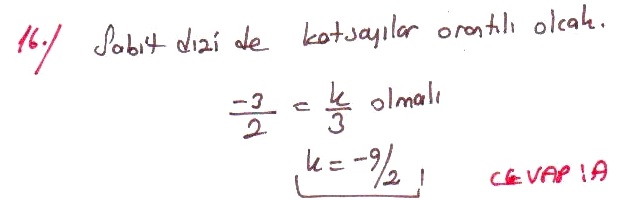 16./ Sabit dizi de katsayılar orantılı olcak.
-3/2 = k/3 olmalı
k = -9/2
CEVAP : A